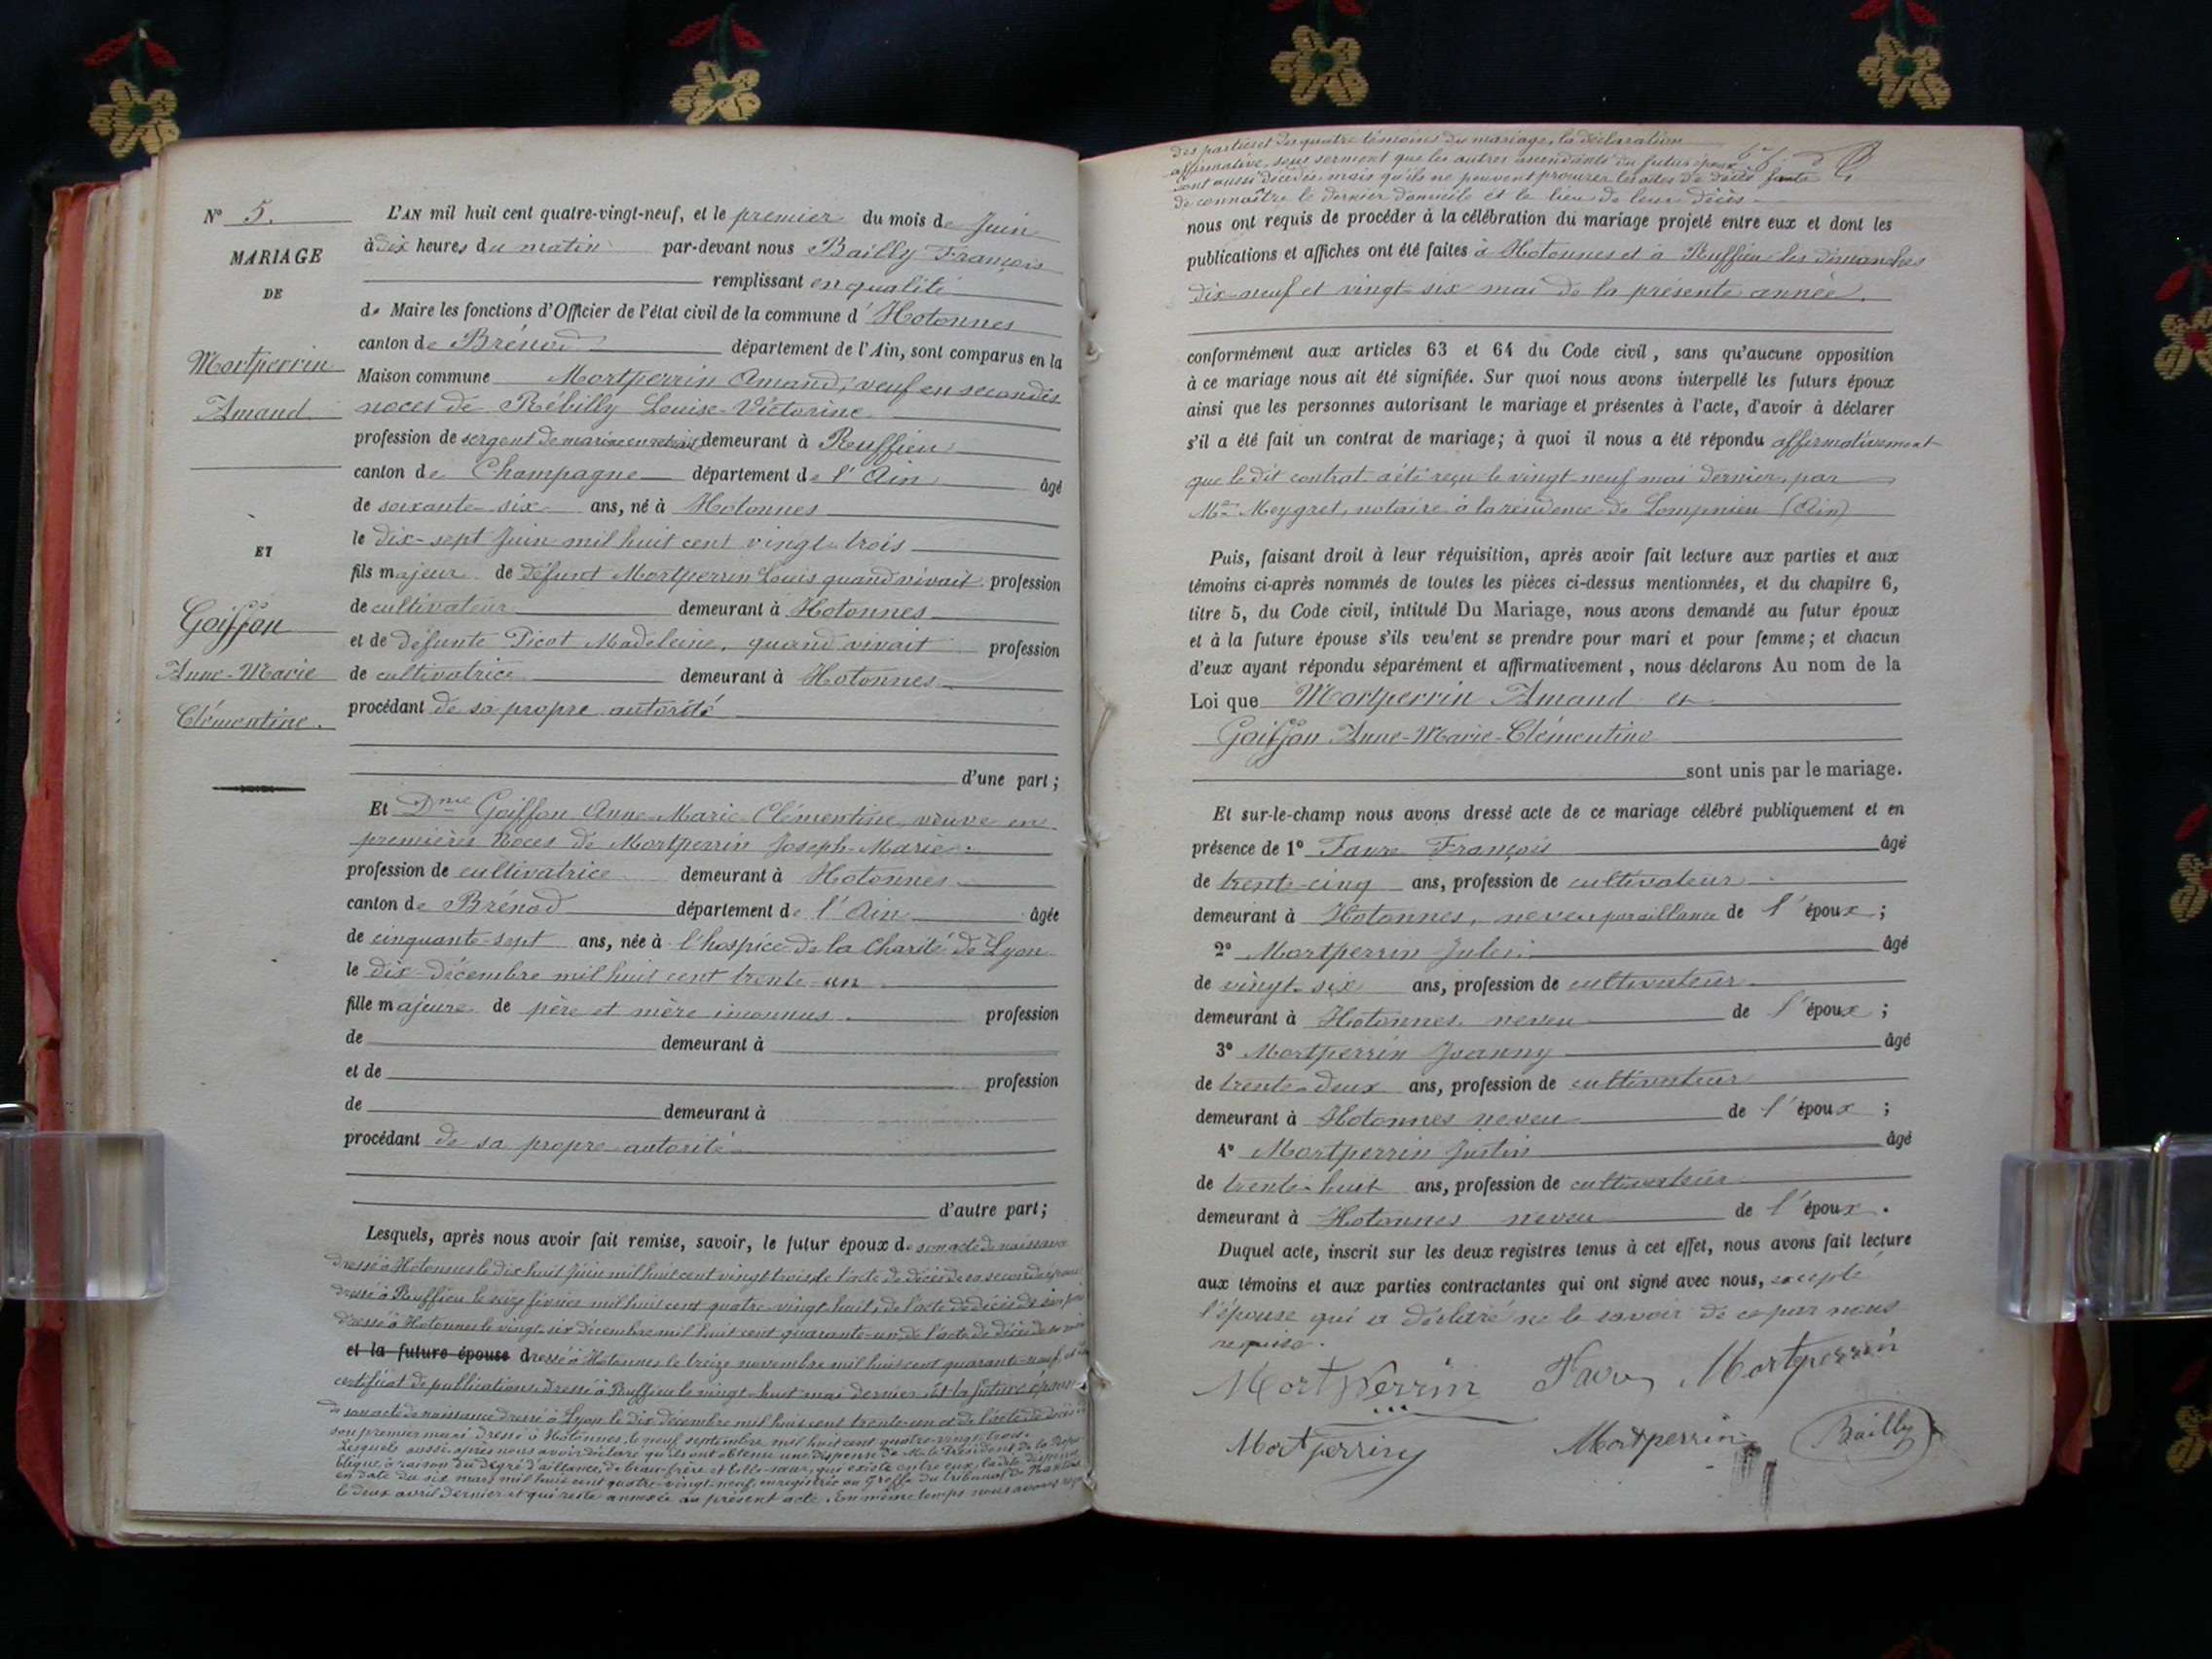 N° 5.
MARIAGE
DE
Mortperrin
Amand.
ET
Goiffon
Anne-Marie
Clémentine.
L'AN mil huit cent quatre-vingt-neuf, et le premier du mois de Juin
à dix heures du matin par-devant nous Bailly François
remplissant en qualité
de Maire les fonctions d'Officier de l'état civil de la commune d'Hotonnes
canton de Brénod département de l'Ain, sont comparus en la
Maison commune Mortperrin Amand, veuf en secondes
noces de Rébilly Louise-Victorine
profession de sergent de marine en retraite demeurant à Ruffieu
canton de Champagne département de l'Ain âgé
de soixante-six ans, né à Hotonnes
le dix-sept Juin mil huit cent vingt-trois
fils majeur de défunt Mortperrin Louis quand vivait profession
de cultivateur demeurant à Hotonnes
et de défunte Picot Madeleine, quand vivait profession
de cultivatrice demeurant à Hotonnes
procédant de sa propre autorité
d'une part;
Et Dme Goiffon Anne-Marie Clémentine, veuve en
premières Noces de Mortperrin Joseph-Marie.
profession de cultivatrice demeurant à Hotonnes
canton de Brénod département de l'Ain âgée
de cinquante-sept ans, née à l'hospice de la Charité de Lyon
le dix décembre mil huit cent trente-un
fille majeure de père et mère inconnus. profession
de demeurant à
et de profession
de demeurant à
procédant de sa propre autorité
d'autre part;
Lesquels, après nous avoir fait remise, savoir, le futur époux de son acte de naissance
dressé à Hotonnes le dix huit Juin mil huit cent vingt trois, de l'acte de décès de sa seconde
dressé à Ruffieu le février mil huit cent quatre-vingt huit, de l'acte de décès de son père
dressé à Hotonnes le vingt-six décembre mil huit cent quarante-un, de l'acte de décès de sa mère
et la future épouse dressé à Hotonnes le treize novembre mil huit cent quarante-neuf, et
certificat de publications dressé à Ruffieu le vingt-huit mai dernier. Et la future épouse
de son acte de naissance dressé à Lyon le dix décembre mil huit cent trente-un et de l'acte de décès de
son premier mari dressé à Hotonnes, le neuf septembre mil huit cent quatre-vingt-trois.
Lesquels aussi après nous avoir déclaré qu'ils ont obtenu une dispense de Mr le Président de la Répu-
blique, à raison du degré d'alliance, de beau-frère et belle-sœur, qui existe entre eux, la dite dispense
en date du six mars mil huit cent quatre-vingt-neuf, enregistrée au Greffe du tribunal de Nantua
le deux avril dernier et qui reste annexée au présent acte. En même temps nous avons reçu
des parties et des quatre témoins du mariage, la déclaration
affirmative, sous serment que les autres ascendants du futur époux
sont aussi décédés, mais qu'ils ne peuvent procurer les actes de décès faute
de connaître le dernier domicile et le lieu de leur décès.
nous ont requis de procéder à la célébration du mariage projeté entre eux et dont les
publications et affiches ont été faites à Hotonnes et à Ruffieu les dimanches
dix-neuf et vingt-six mai de la présente année.
conformément aux articles 63 et 64 du Code civil, sans qu'aucune opposition
à ce mariage nous ait été signifiée. Sur quoi nous avons interpellé les futurs époux
ainsi que les personnes autorisant le mariage et présentes à l'acte, d'avoir à déclarer
s'il a été fait un contrat de mariage; à quoi il nous a été répondu affirmativement
que le dit contrat a été reçu le vingt-neuf mai dernier, par
Me Meygret, notaire à la résidence de Lompnieu (Ain)
Puis, faisant droit à leur réquisition, après avoir fait lecture aux parties et aux
témoins ci-après nommés de toutes les pièces ci-dessus mentionnées, et du chapitre 6,
titre 5, du Code civil, intitulé Du Mariage, nous avons demandé au futur époux
et à la future épouse s'ils veulent se prendre pour mari et pour femme; et chacun
d'eux ayant répondu séparément et affirmativement, nous déclarons Au nom de la
Loi que Mortperrin Amand et
Goiffon Anne-Marie-Clémentine
sont unis par le mariage.
Et sur-le-champ nous avons dressé acte de ce mariage célébré publiquement et en
présence de 1° Favre François âgé
de trente-cinq ans, profession de cultivateur
demeurant à Hotonnes, neveu par alliance de l'époux;
2° Mortperrin Jules âgé
de vingt-six ans, profession de cultivateur
demeurant à Hotonnes, neveu de l'époux;
3° Mortperrin Joanny âgé
de trente-deux ans, profession de cultivateur
demeurant à Hotonnes neveu de l'époux;
4° Mortperrin Justin âgé
de trente-huit ans, profession de cultivateur
demeurant à Hotonnes neveu de l'époux.
Duquel acte, inscrit sur les deux registres tenus à cet effet, nous avons fait lecture
aux témoins et aux parties contractantes qui ont signé avec nous, excepté
l'épouse qui a déclaré ne le savoir de ce par nous
requise.
Mortperrin Favre Mortperrin
Mortperrin Mortperrin Bailly